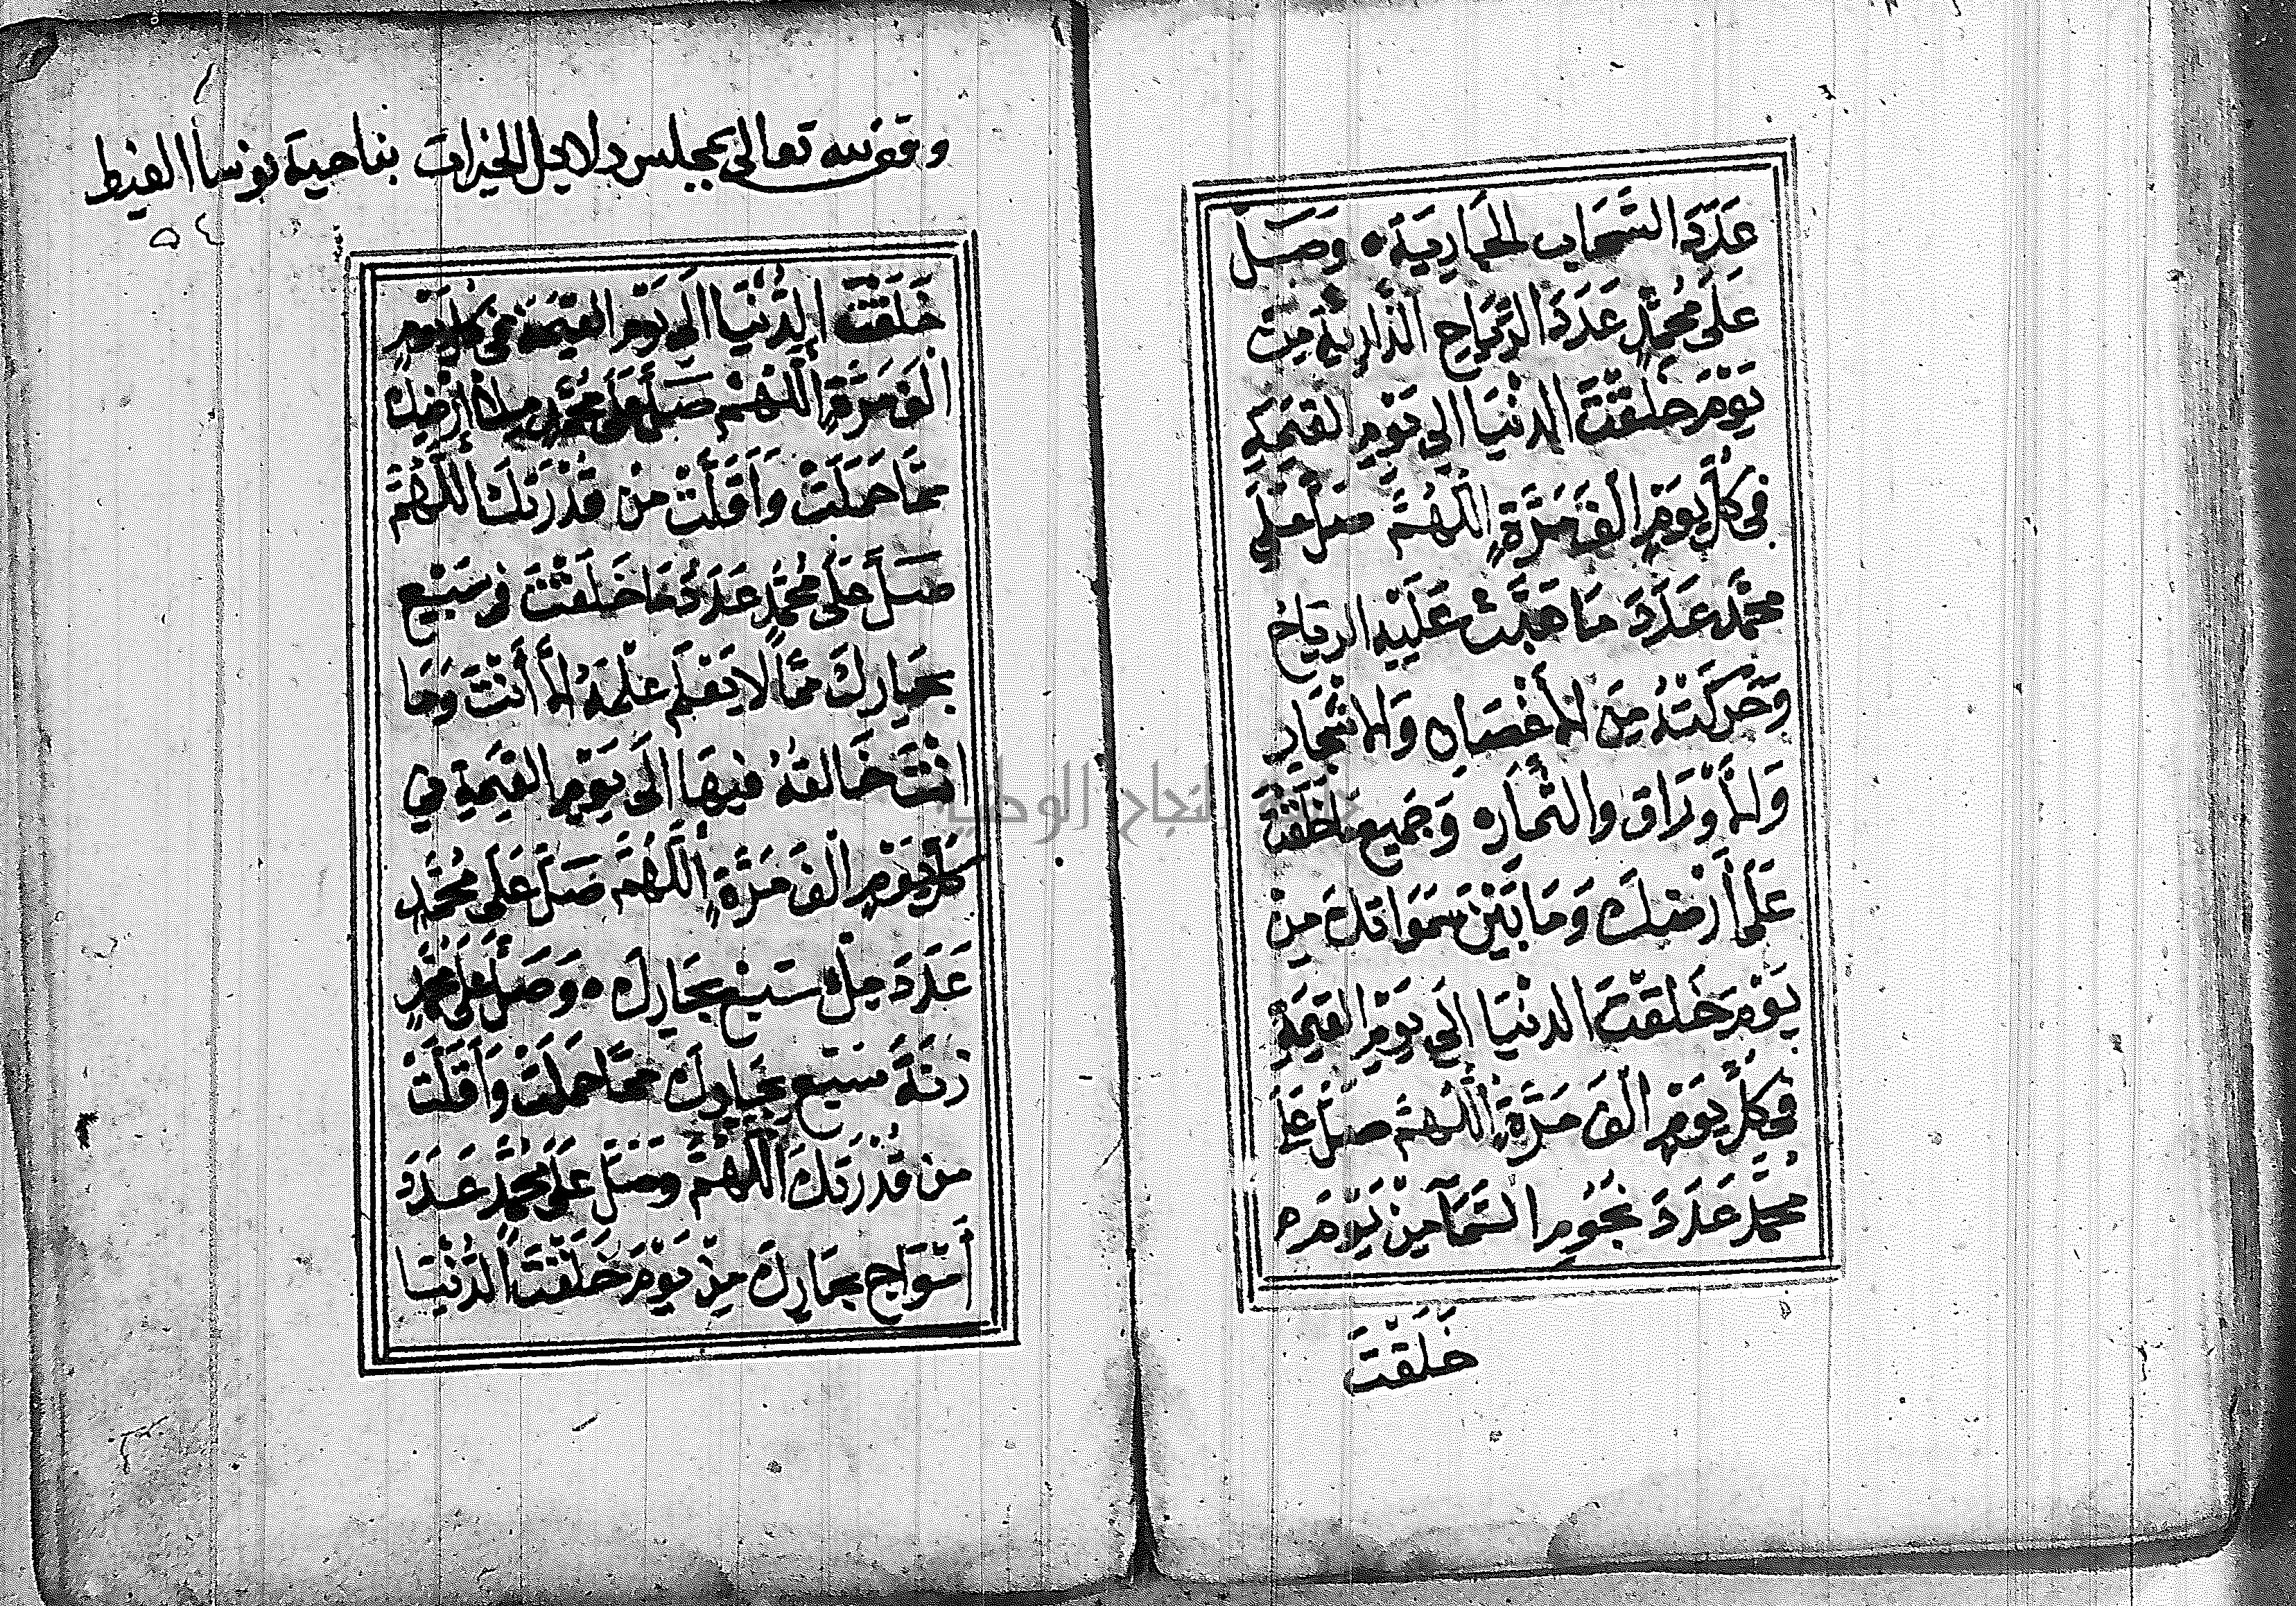 عَدَدَ السَّحَابِ الجَارِيَةِ وَصَلِّ
عَلَى مُحَمَّدٍ عَدَدَ الرِّيَاحِ الذَّارِيَةِ مِنْ
يَوْمَ خَلَقْتَ الدنْيَا إلى يَوْمِ القِيَمَةِ
فِي كُلِّ يَوْمٍ الْفَ مَرَّةٍ اللَّهُمَّ صَلِّ عَلَى
مُحَمَّدٍ عَدَدَ مَا هَبَّتْ عَلَيْهِ الرِيَاحُ
وَحَرَكَتْهُ مِنَ الأَغْصَانِ وَالاشْجَارِ
وَالأَوْرَاقِ والثِّمَارِ وَجَمِيعِ مَا خَلَقْتَ
عَلَى أَرْضِكَ وَمَا بَيْنَ سَمَوَاتِكَ مِنْ
يَوْمَ خَلَقْتَ الدنْيَا إلَى يَوْمِ القِيَمَةِ
فِي كُلِّ يَوْمٍ الْفَ مَرَّةٍ اللَّهُمَّ صَلِّ عَلَى
مُحَمَّدٍ عَدَدَ نُجُومِ السَّمَآءِ مِنْ يَوْمَ
خَلَقْتَ
وقف لله تعالى بمجلس دلايل الخيرات بناحية نوسا الغيط
٥٤
خَلَقْتَ الدُّنْيَا إلَى يَوْمِ القِيَمَةِ فِي كُلِّ يَوْمٍ
الْفَ مَرَّةٍ اللَّهُمَّ صَلِّ عَلَى مُحَمَّدٍ مِلأَ أرْضِكَ
مِمَّا حَمَلَتْ وَأَقَلَّتْ مِنْ قُدْرَتِكَ اللَّهُمَّ
صَلِّ عَلَى مُحَمَّدٍ عَدَدَ مَا خَلَقْتَ فِي سَبْعِ
بِحَارِكَ مِمَّا لَا يَعْلَمُ عِلْمَهُ إلَّا أَنْتَ وَمَا
انْتَ خَالِقُهُ فِيهَا الَى يَوْمِ القِيَمَةِ فِي
كُلِّ يَوْمٍ الْفَ مَرَّةٍ اللَّهُمَّ صَلِّ عَلَى مُحَمَّدٍ
عَدَدَ مِلْءِ سَبْعِ بِحَارِكَ وَصَلِّ عَلَى مُحَمَّدٍ
زِنَةَ سَبْعِ بِحَارِكَ مِمَّا حَمَلَتْ وَأَقَلَّتْ
مِن قُدْرَتِكَ اللَّهُمَّ وَصَلِّ عَلَى مُحَمَّدٍ عَدَدَ
أَمْوَاجِ بِحَارِكَ مِنْ يَوْمَ خَلَقْتَ الدُّنْيَا
جامعة النجاح الوطنية